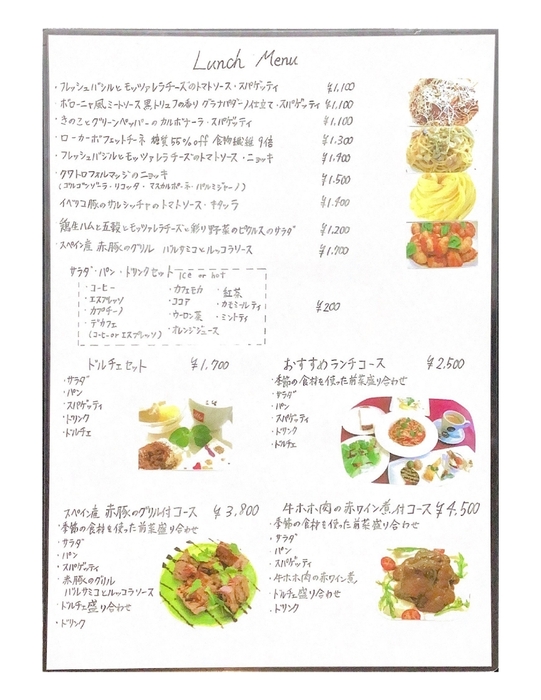 Lunch Menu
・フレッシュバジルとモッツァレラチーズのトマトソース・スパゲッティ ¥1,100
・ボローニャ風ミートソース 黒トリュフの香り グラナパダーノ仕立て・スパゲッティ ¥1,100
・きのことグリーンペッパーのカルボナーラ・スパゲッティ ¥1,100
・ローカーボフェットチーネ 糖質55%off 食物繊維9倍 ¥1,300
・フレッシュバジルとモッツァレラチーズのトマトソース・ニョッキ ¥1,400
・クワトロフォルマッジのニョッキ ¥1,500
(ゴルゴンゾーラ・リコッタ・マスカルポーネ・パルミジャーノ)
・イベリコ豚のサルシッチャのトマトソース・キタッラ ¥1,400
・鶏生ハムと五穀とモッツァレラチーズと彩り野菜のピクルスのサラダ ¥1,200
・スペイン産 赤豚のグリル バルサミコとルッコラソース ¥1,700
サラダ・パン・ドリンクセット ice or hot
¥200
・コーヒー
・エスプレッソ
・カプチーノ
・デカフェ
(コーヒーorエスプレッソ)
・カフェモカ
・ココア
・ウーロン茶
・オレンジジュース
・紅茶
・カモミールティ
・ミントティ
ドルチェセット ¥1,700
・サラダ
・パン
・スパゲッティ
・ドリンク
・ドルチェ
おすすめランチコース ¥2,500
・季節の食材を使った前菜盛り合わせ
・サラダ
・パン
・スパゲッティ
・ドリンク
・ドルチェ
スペイン産 赤豚のグリル付コース ¥3,800
・季節の食材を使った前菜盛り合わせ
・サラダ
・パン
・スパゲッティ
・赤豚のグリル
バルサミコとルッコラソース
・ドルチェ盛り合わせ
・ドリンク
牛ホホ肉の赤ワイン煮付コース ¥4,500
・季節の食材を使った前菜盛り合わせ
・サラダ
・パン
・スパゲッティ
・牛ホホ肉の赤ワイン煮
・ドルチェ盛り合わせ
・ドリンク